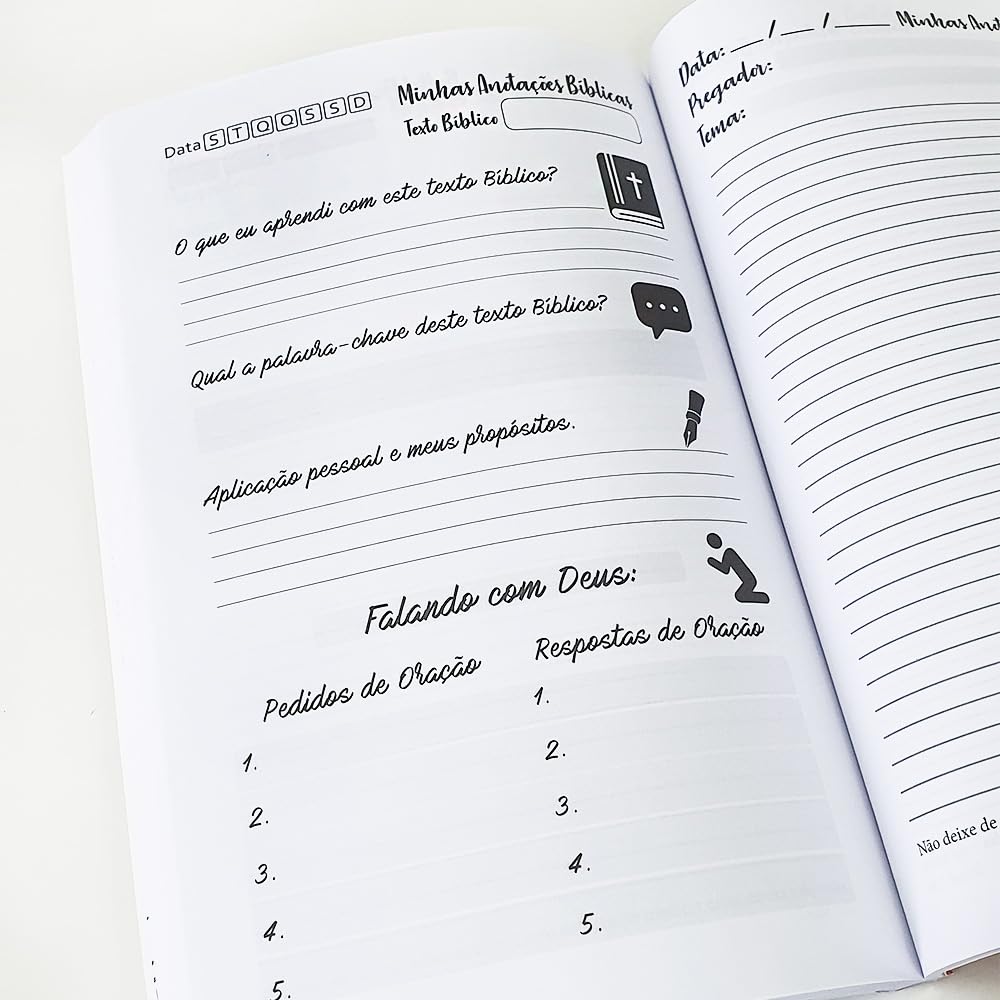 Data S T Q Q S S D
Minhas Anotações Bíblicas
Texto Bíblico
O que eu aprendi com este texto Bíblico?
Qual a palavra-chave deste texto Bíblico?
Aplicação pessoal e meus propósitos.
Falando com Deus:
Pedidos de Oração
1.
2.
3.
4.
5.
Respostas de Oração
1.
2.
3.
4.
5.
Data: __/__/____ Minhas
Pregador:
Tema:
Não deixe de